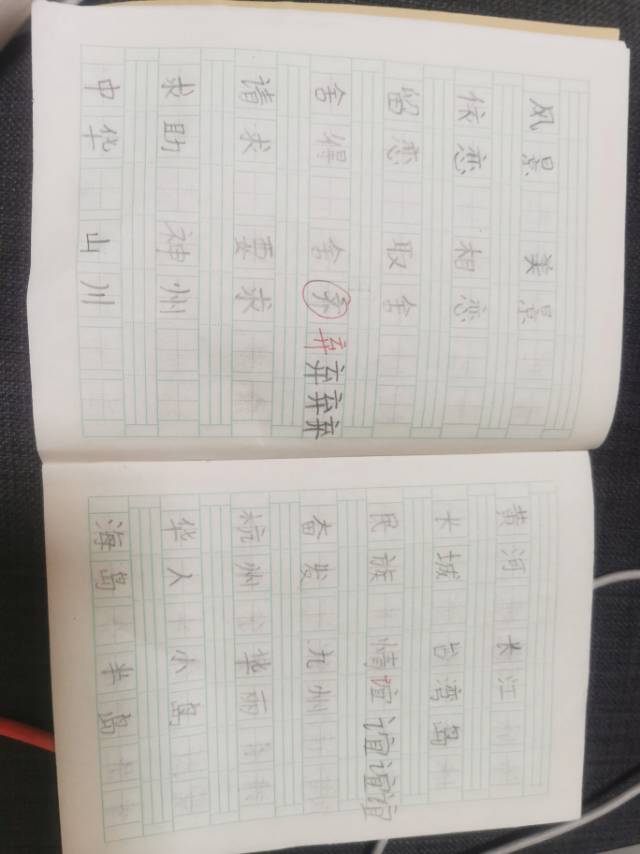 风景 美景
依恋 相恋
留恋 取舍
舍得 舍 弃弃弃弃
请求 要求
求助 神州
中华 山川
黄河 长江
长城 台湾岛
民族 情谊谊谊谊
奋发 九州
杭州 华丽
华人 小岛
海岛 半岛